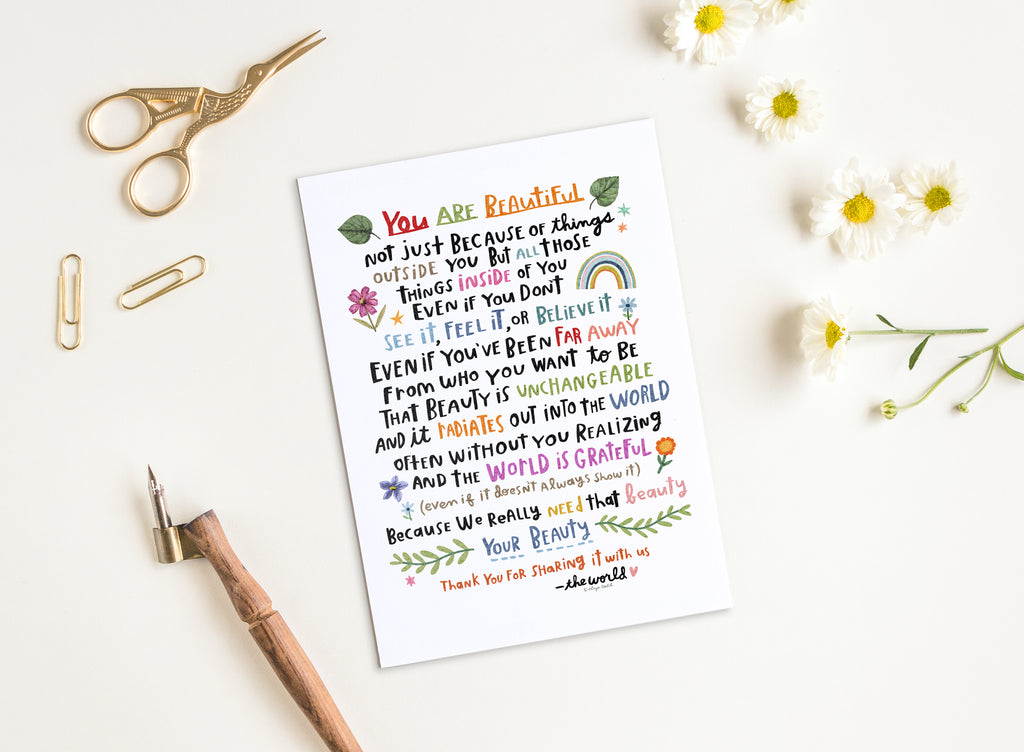 You ARE BEAUTiFUL
NOT JUST BECAUSE OF things
OUTSIDE YOU BUT ALL THOSE
THINGS INSIDE OF YOU
EVEN IF YOU DON'T
SEE iT, FEEL iT, OR BELiEVE iT
EVEN iF YOU'VE BEEN FAR AWAY
FROM WHO YOU WANT to BE
THAT BEAUTY iS UNCHANGEABLE
AND it RADiATES OUT iNTO tHE WORLD
OFTEN WiTHOUT YOU REALiZiNG
AND THE WORLD iS GRATEFUL
(even if it doesn't Always show it)
Because We ReAlly NEED that beauty
YOUR BEAUTY
THANK YOU FOR SHARiNG iT WiTH US
—the world